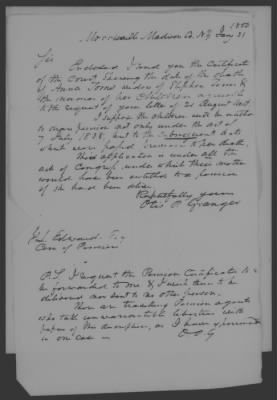 1853
Morrisville Madison Co. NY Jany 31
Sir Enclosed I send you the Certificate
of the Court, showing the date of the death
of Anna Toms widow of Stephen Toms &
the names of her Children agreeable
to the request of your letter of 20 August last.
I suppose the children will be entitled
to draw pension not only under the act of
7 July 1838, but to the subsequent acts
which were passed previous to her death.
This application is under all the
acts of Congress, under which their mother
would have been entitled to a pension
if she had been alive.
Respectfully yours
Otis P. Granger
J. L. Edwards Esq
Com of Pensions
P.S. I request the Pension Certificate to
be forwarded to me & I wish them to be
delivered nor sent to no other person.
There are travelling Pension agents
who take unwarrantable liberties with
papers of this description, as I have
in one case
O P G